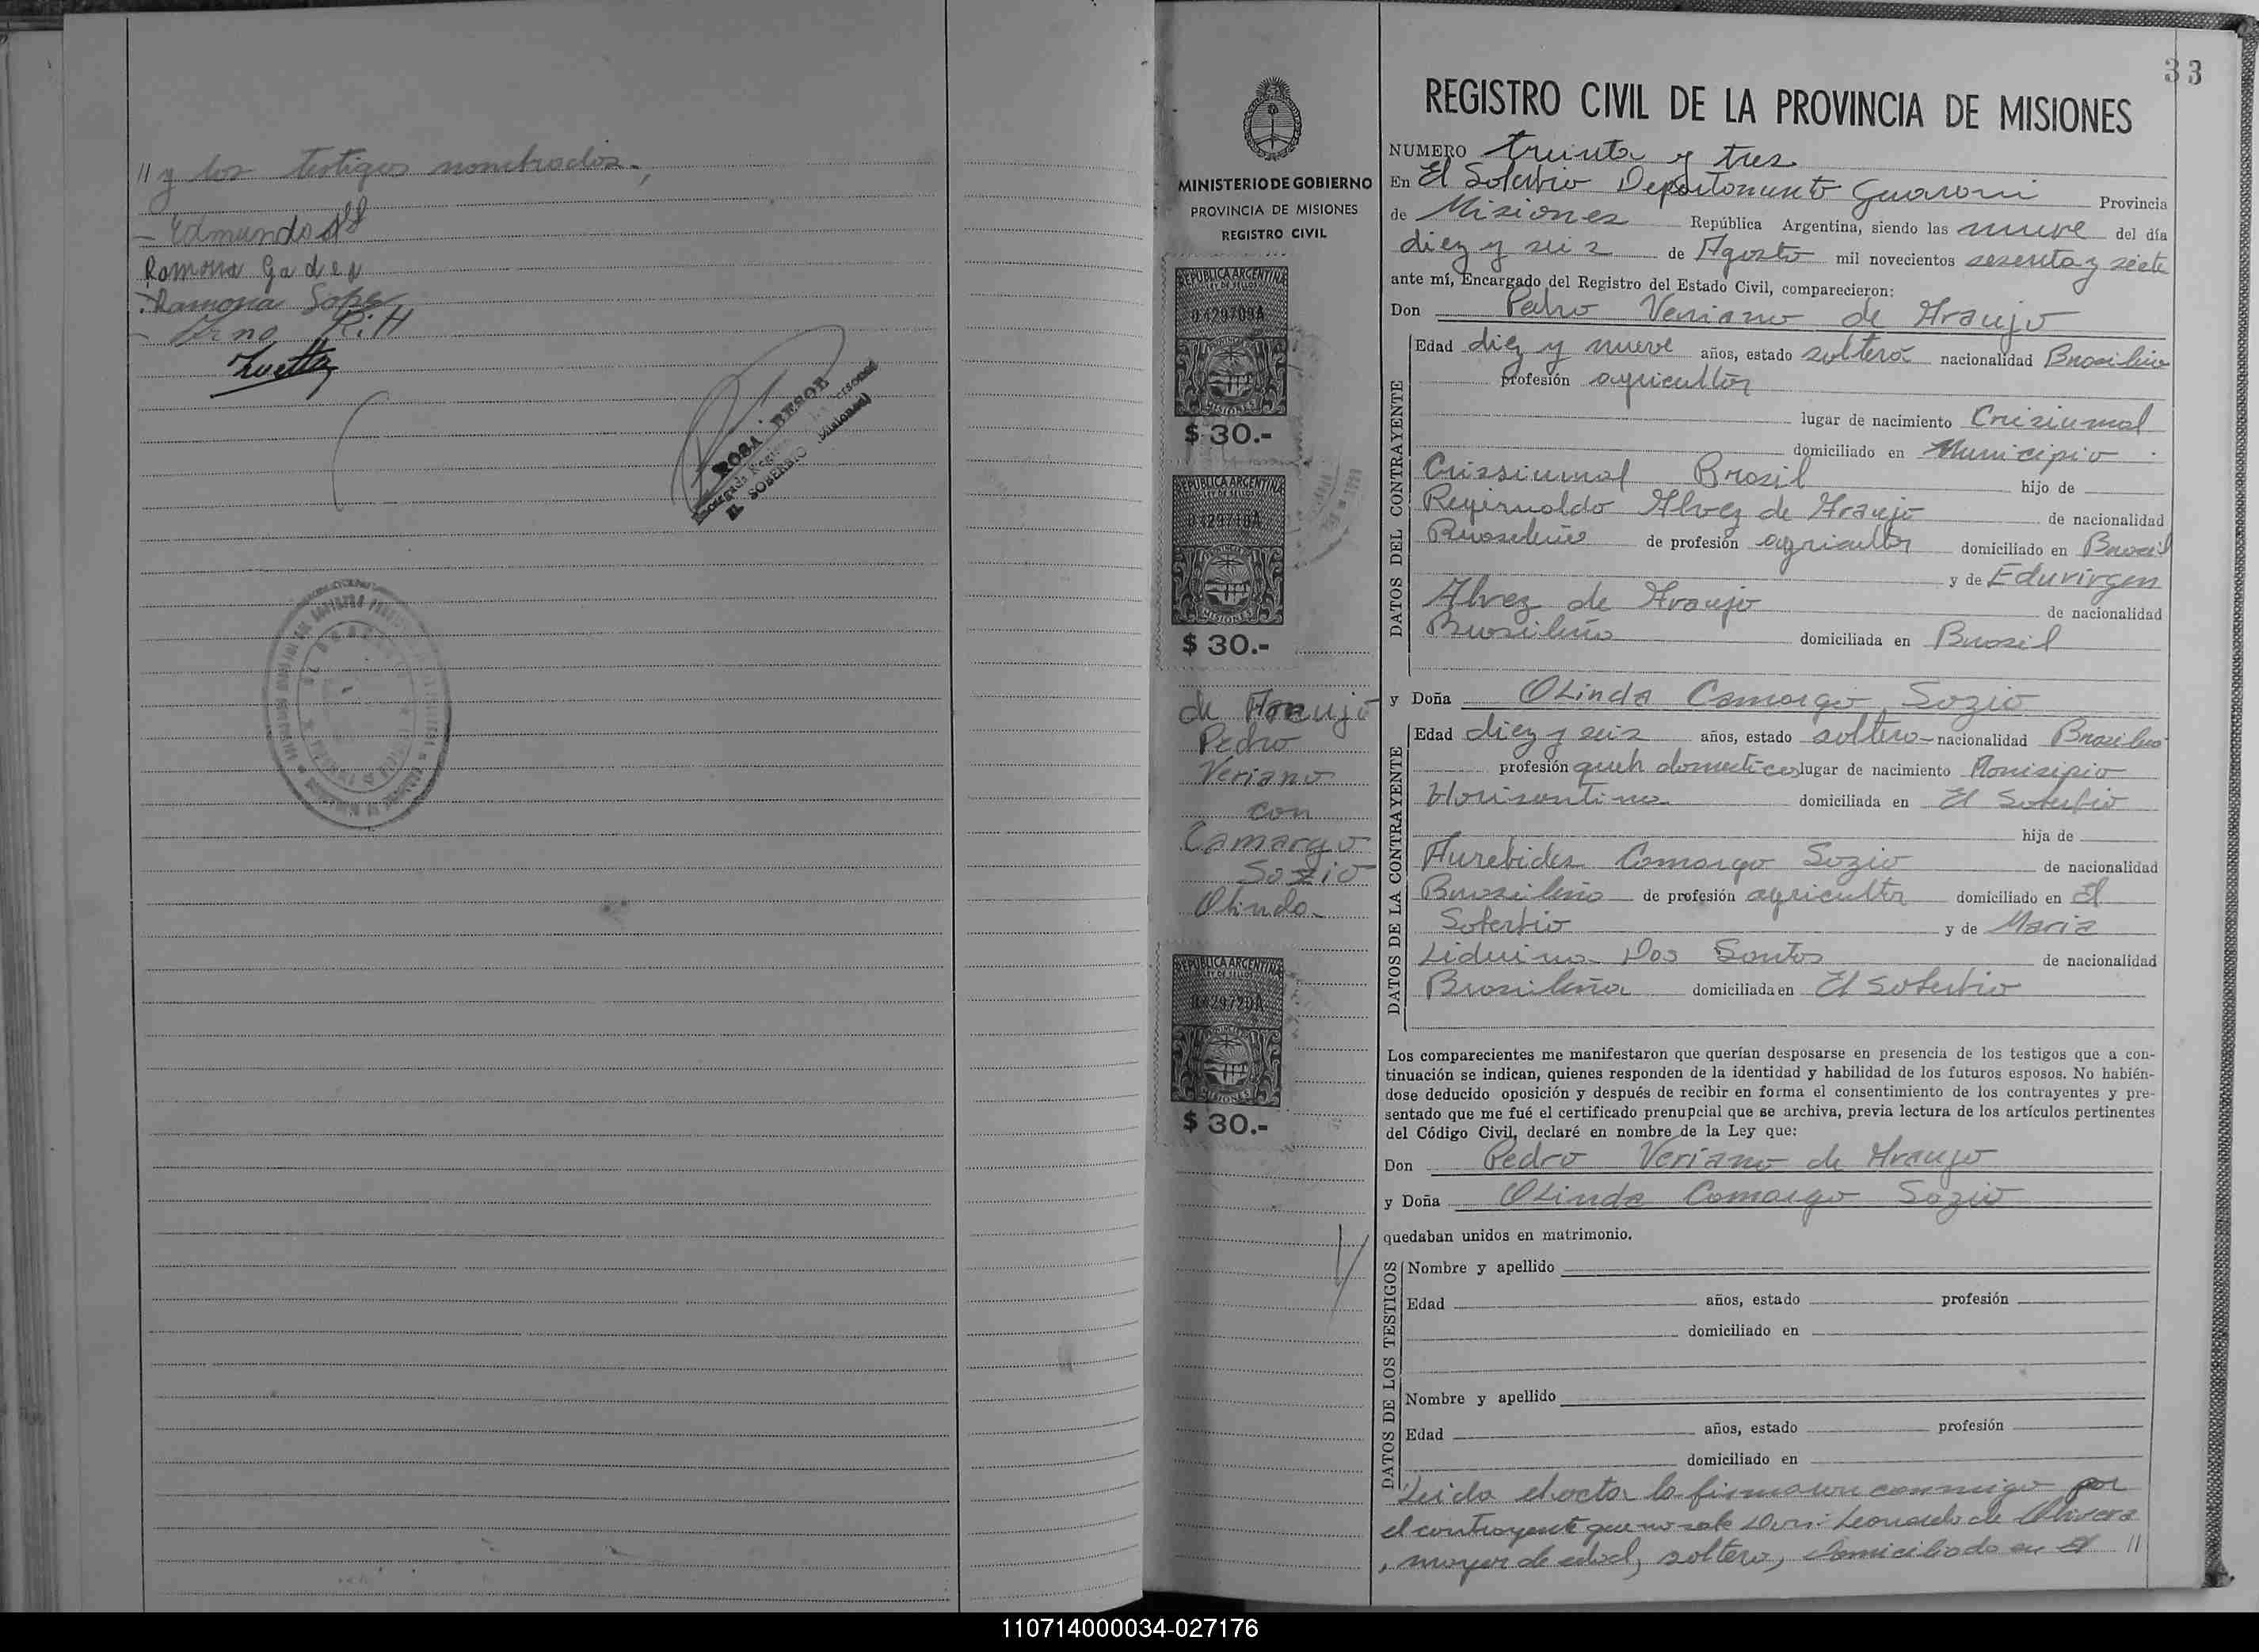 // y los testigos nombrados.,
- Edmundo
Ramona Gader
Ramona
- Erno Ritt
ROSA BESOE
EL SOBERBIO (Misiones)
33
MINISTERIO DE GOBIERNO
PROVINCIA DE MISIONES
REGISTRO CIVIL
REPUBLICA ARGENTINA
LEY DE SELLOS
0429709A
MISIONES
$ 30.-
REPUBLICA ARGENTINA
LEY DE SELLOS
0429710A
MISIONES
$ 30.-
de Araujo
Pedro
Veriano
con
Camargo
Sozio
Olinda.
REPUBLICA ARGENTINA
LEY DE SELLOS
0429720A
MISIONES
$ 30.-
REGISTRO CIVIL DE LA PROVINCIA DE MISIONES
NUMERO treinta y tres
En El Soberbio Departamento Guarani Provincia
de Misiones República Argentina, siendo las nueve del día
diez y seis de Agosto mil novecientos sesenta y siete
ante mí, Encargado del Registro del Estado Civil, comparecieron:
Don Pedro Veriano de Araujo
DATOS DEL CONTRAYENTE
Edad diez y nueve años, estado soltero nacionalidad Brasileño
profesión agricultor
lugar de nacimiento Crisiumal
domiciliado en Municipio
Crissiumal Brasil hijo de
Reginaldo Alvez de Araujo de nacionalidad
Brasileño de profesión agricultor domiciliado en Brasil
y de Eduvirgen
Alvez de Araujo de nacionalidad
Brasileña domiciliada en Brasil
y Doña Olinda Camargo Sozio
DATOS DE LA CONTRAYENTE
Edad diez y seis años, estado soltera - nacionalidad Brasilera
profesión queh domesticos lugar de nacimiento Monisipio
Horisontina domiciliada en El Soberbio
hija de
Aurebides Camargo Sozio de nacionalidad
Brasileño de profesión agricultor domiciliado en El
Soberbio y de Maria
Liduina Dos Santos de nacionalidad
Brasileña domiciliada en El Soberbio
Los comparecientes me manifestaron que querían desposarse en presencia de los testigos que a con-
tinuación se indican, quienes responden de la identidad y habilidad de los futuros esposos. No habién-
dose deducido oposición y después de recibir en forma el consentimiento de los contrayentes y pre-
sentado que me fué el certificado prenupcial que se archiva, previa lectura de los artículos pertinentes
del Código Civil, declaré en nombre de la Ley que:
Don Pedro Veriano de Araujo
y Doña Olinda Camargo Sozio
quedaban unidos en matrimonio.
DATOS DE LOS TESTIGOS
Nombre y apellido
Edad años, estado profesión
domiciliado en
Nombre y apellido
Edad años, estado profesión
domiciliado en
Leida el acta la firmaron conmigo por
el contrayente que no sabe Leonardo de Olivera
, mayor de edad, soltero, domiciliado en El //
110714000034-027176